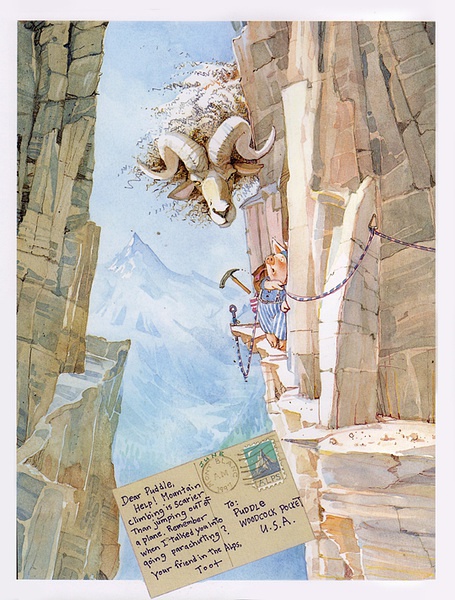 Dear Puddle,
Help! Mountain
climbing is scarier
than jumping out of
a plane. Remember
when I talked you into
going parachuting?
your friend in the Alps,
Toot
To:
PUDDLE
WOODCOCK POCKET
U.S.A.
ALPS